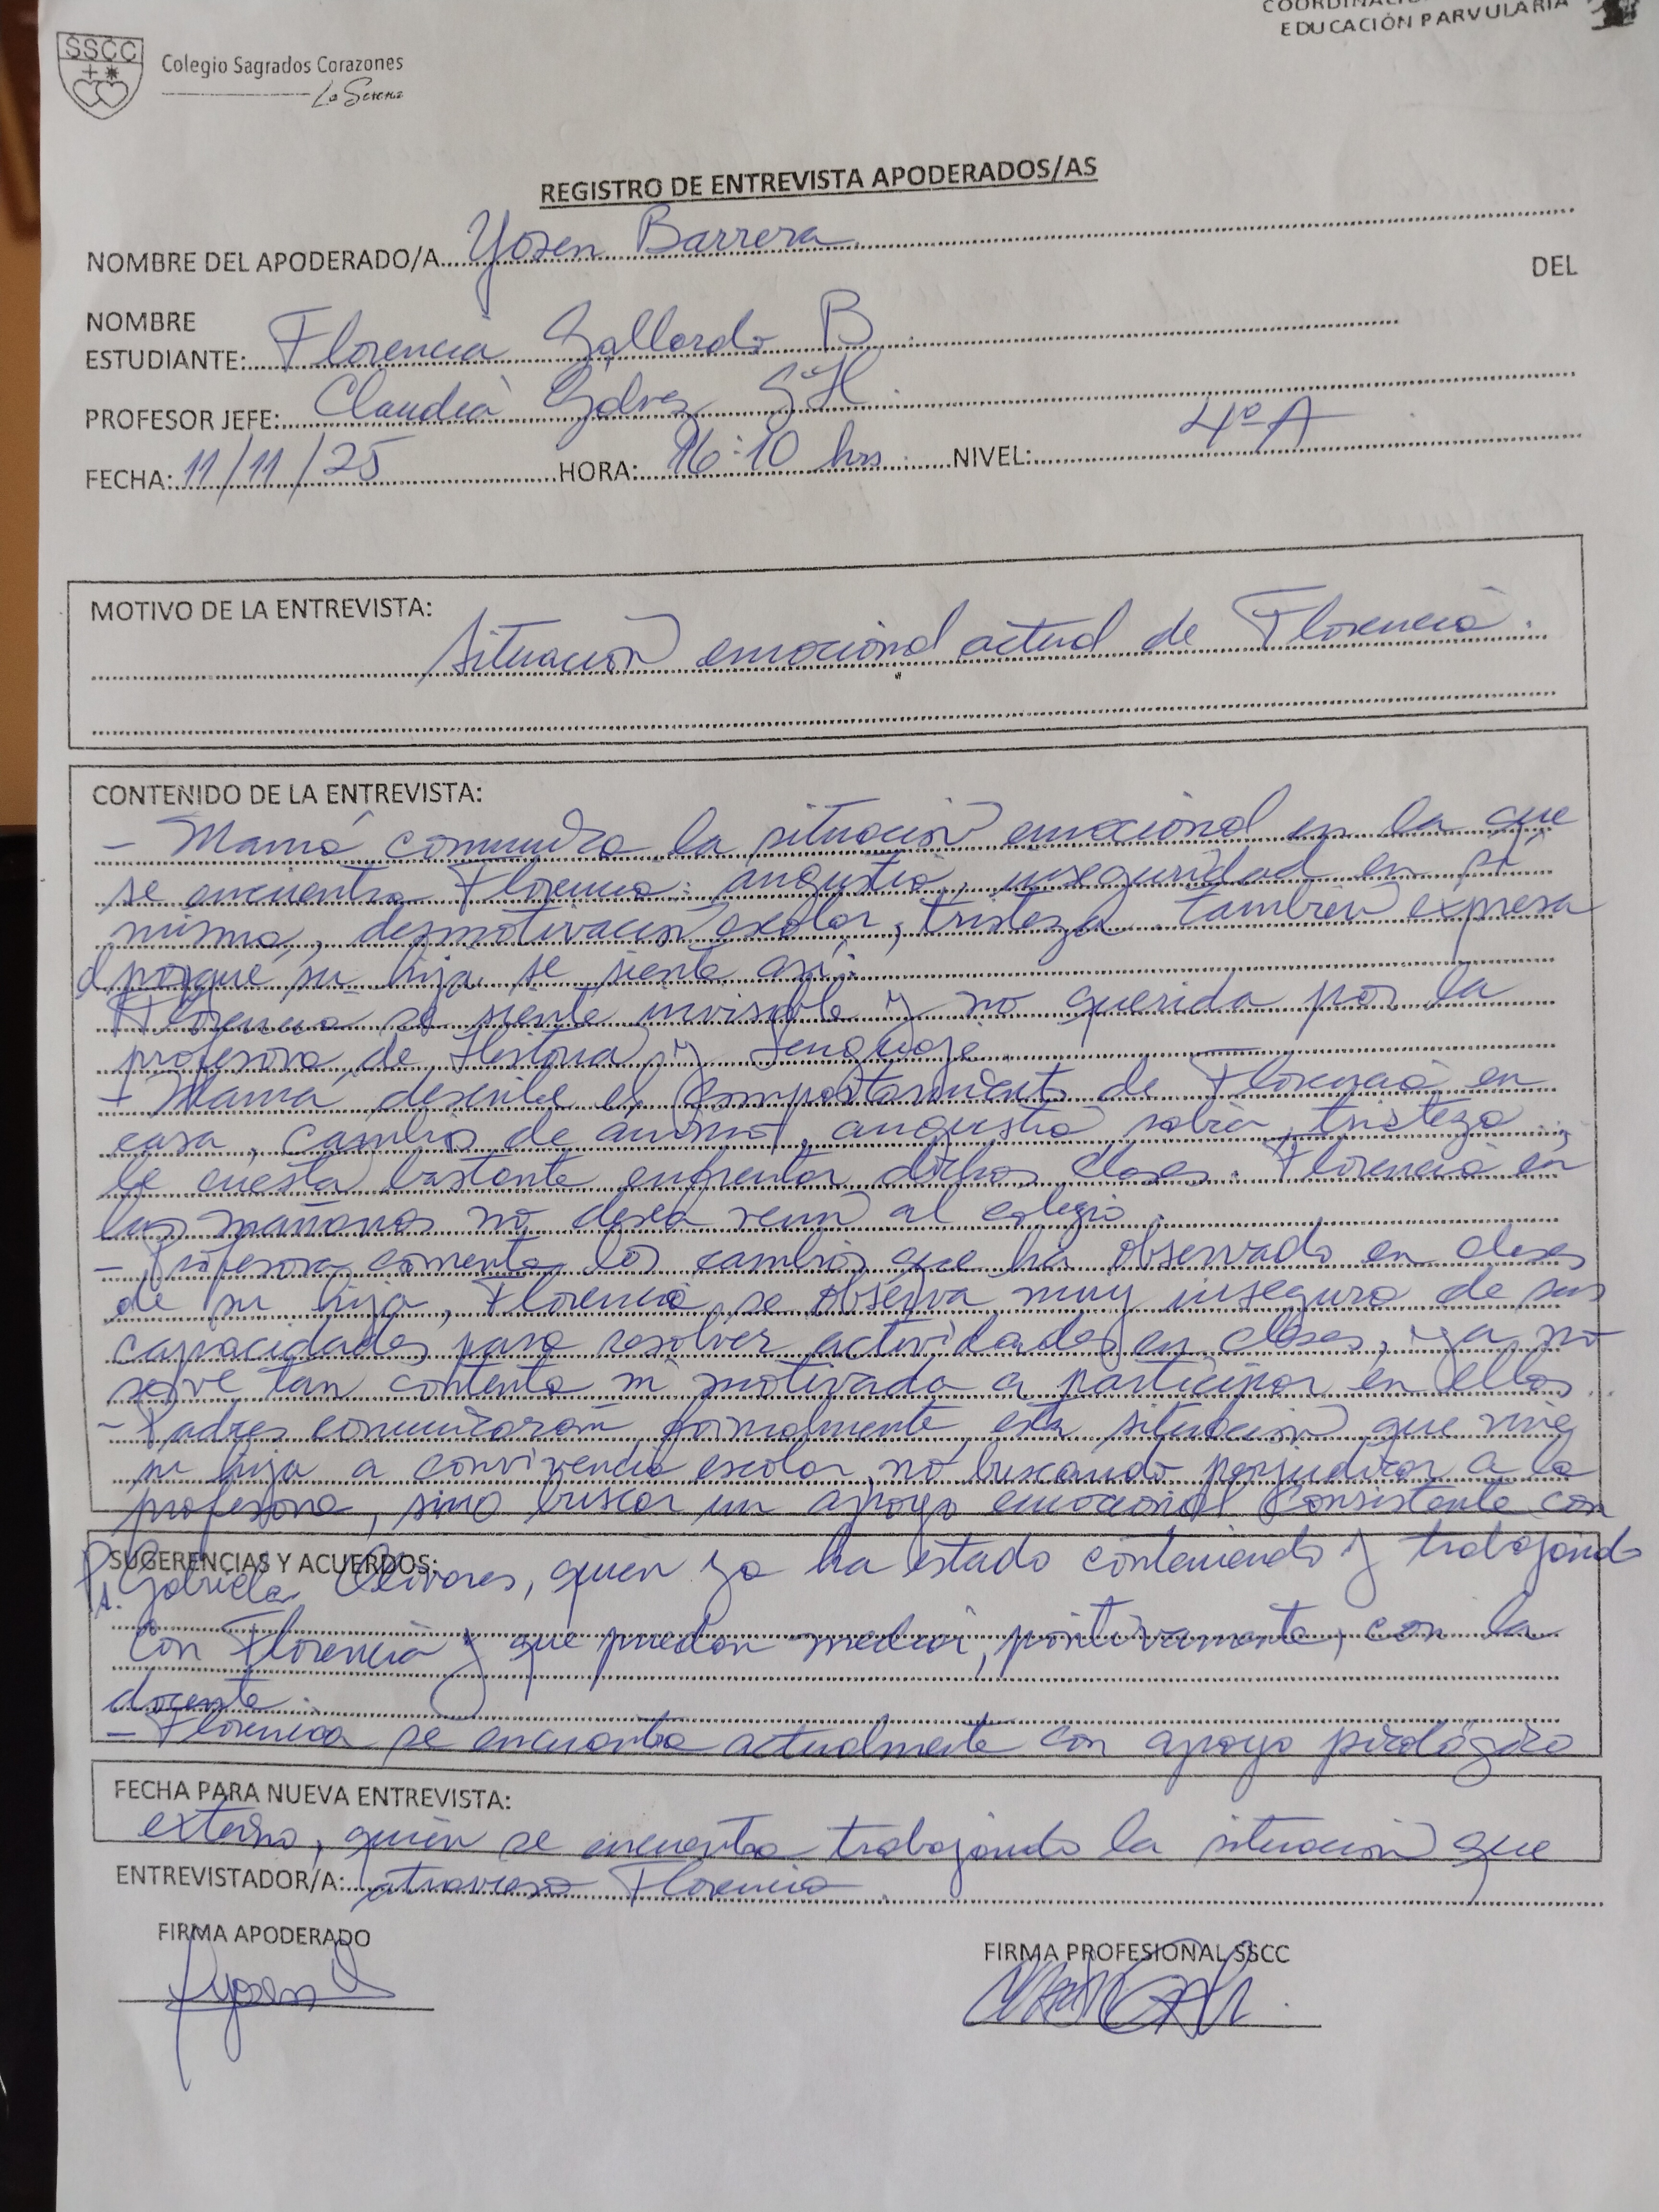 COORDINACI
EDUCACIÓN PARVULARIA
SSCC
Colegio Sagrados Corazones
La Serena
REGISTRO DE ENTREVISTA APODERADOS/AS
NOMBRE DEL APODERADO/A Yosen Barrera
DEL
NOMBRE
ESTUDIANTE: Florencia Gallardo B
PROFESOR JEFE: Claudia Galvez
FECHA: 11/11/25 HORA: 16:10 hrs NIVEL: 4º A
MOTIVO DE LA ENTREVISTA:
Situación emocional actual de Florencia.
CONTENIDO DE LA ENTREVISTA:
- Mamá comunica la situación emocional en la que
se encuentra Florencia: angustia, inseguridad en sí
misma, desmotivación escolar, tristeza. También expresa
el porqué su hija se siente así:
Florencia se siente invisible y no querida por la
profesora de Historia y Lenguaje.
- Mamá describe el comportamiento de Florencia en
casa, cambios de ánimo, angustia, tristeza.
le cuesta bastante enfrentar dichas clases. Florencia en
las mañanas no desea venir al colegio.
- Profesora comenta los cambios que ha observado en clases
de su hija, Florencia se observa muy insegura de sus
capacidades para resolver actividades en clases, ya no
se ve tan contenta ni motivada a participar en ellas.
- Padres comunicaron, formalmente, esta situación que vive
su hija a convivencia escolar, no buscando perjudicar a la
profesora, sino buscar un apoyo emocional consistente con
SUGERENCIAS Y ACUERDOS:
Ps. Gabriela Olivares, quien ya ha estado conteniendo y trabajando
con Florencia y que puedan mediar, positivamente, con la
docente.
- Florencia se encuentra actualmente con apoyo psicológico
FECHA PARA NUEVA ENTREVISTA:
externo, quien se encuentra trabajando la situación que
ENTREVISTADOR/A: atraviesa Florencia.
FIRMA APODERADO
FIRMA PROFESIONAL SSCC